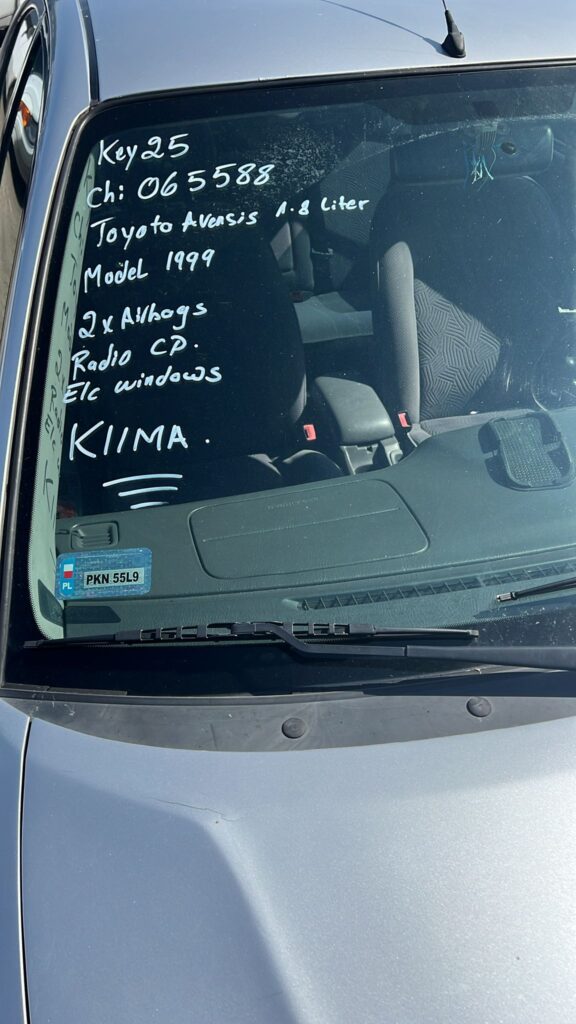 Key 25
Ch: 065588
Toyota Avensis 1.8 Liter
Model 1999
2x Airbags
Radio CD.
Elc windows
KlIMA.
PL PKN 55L9